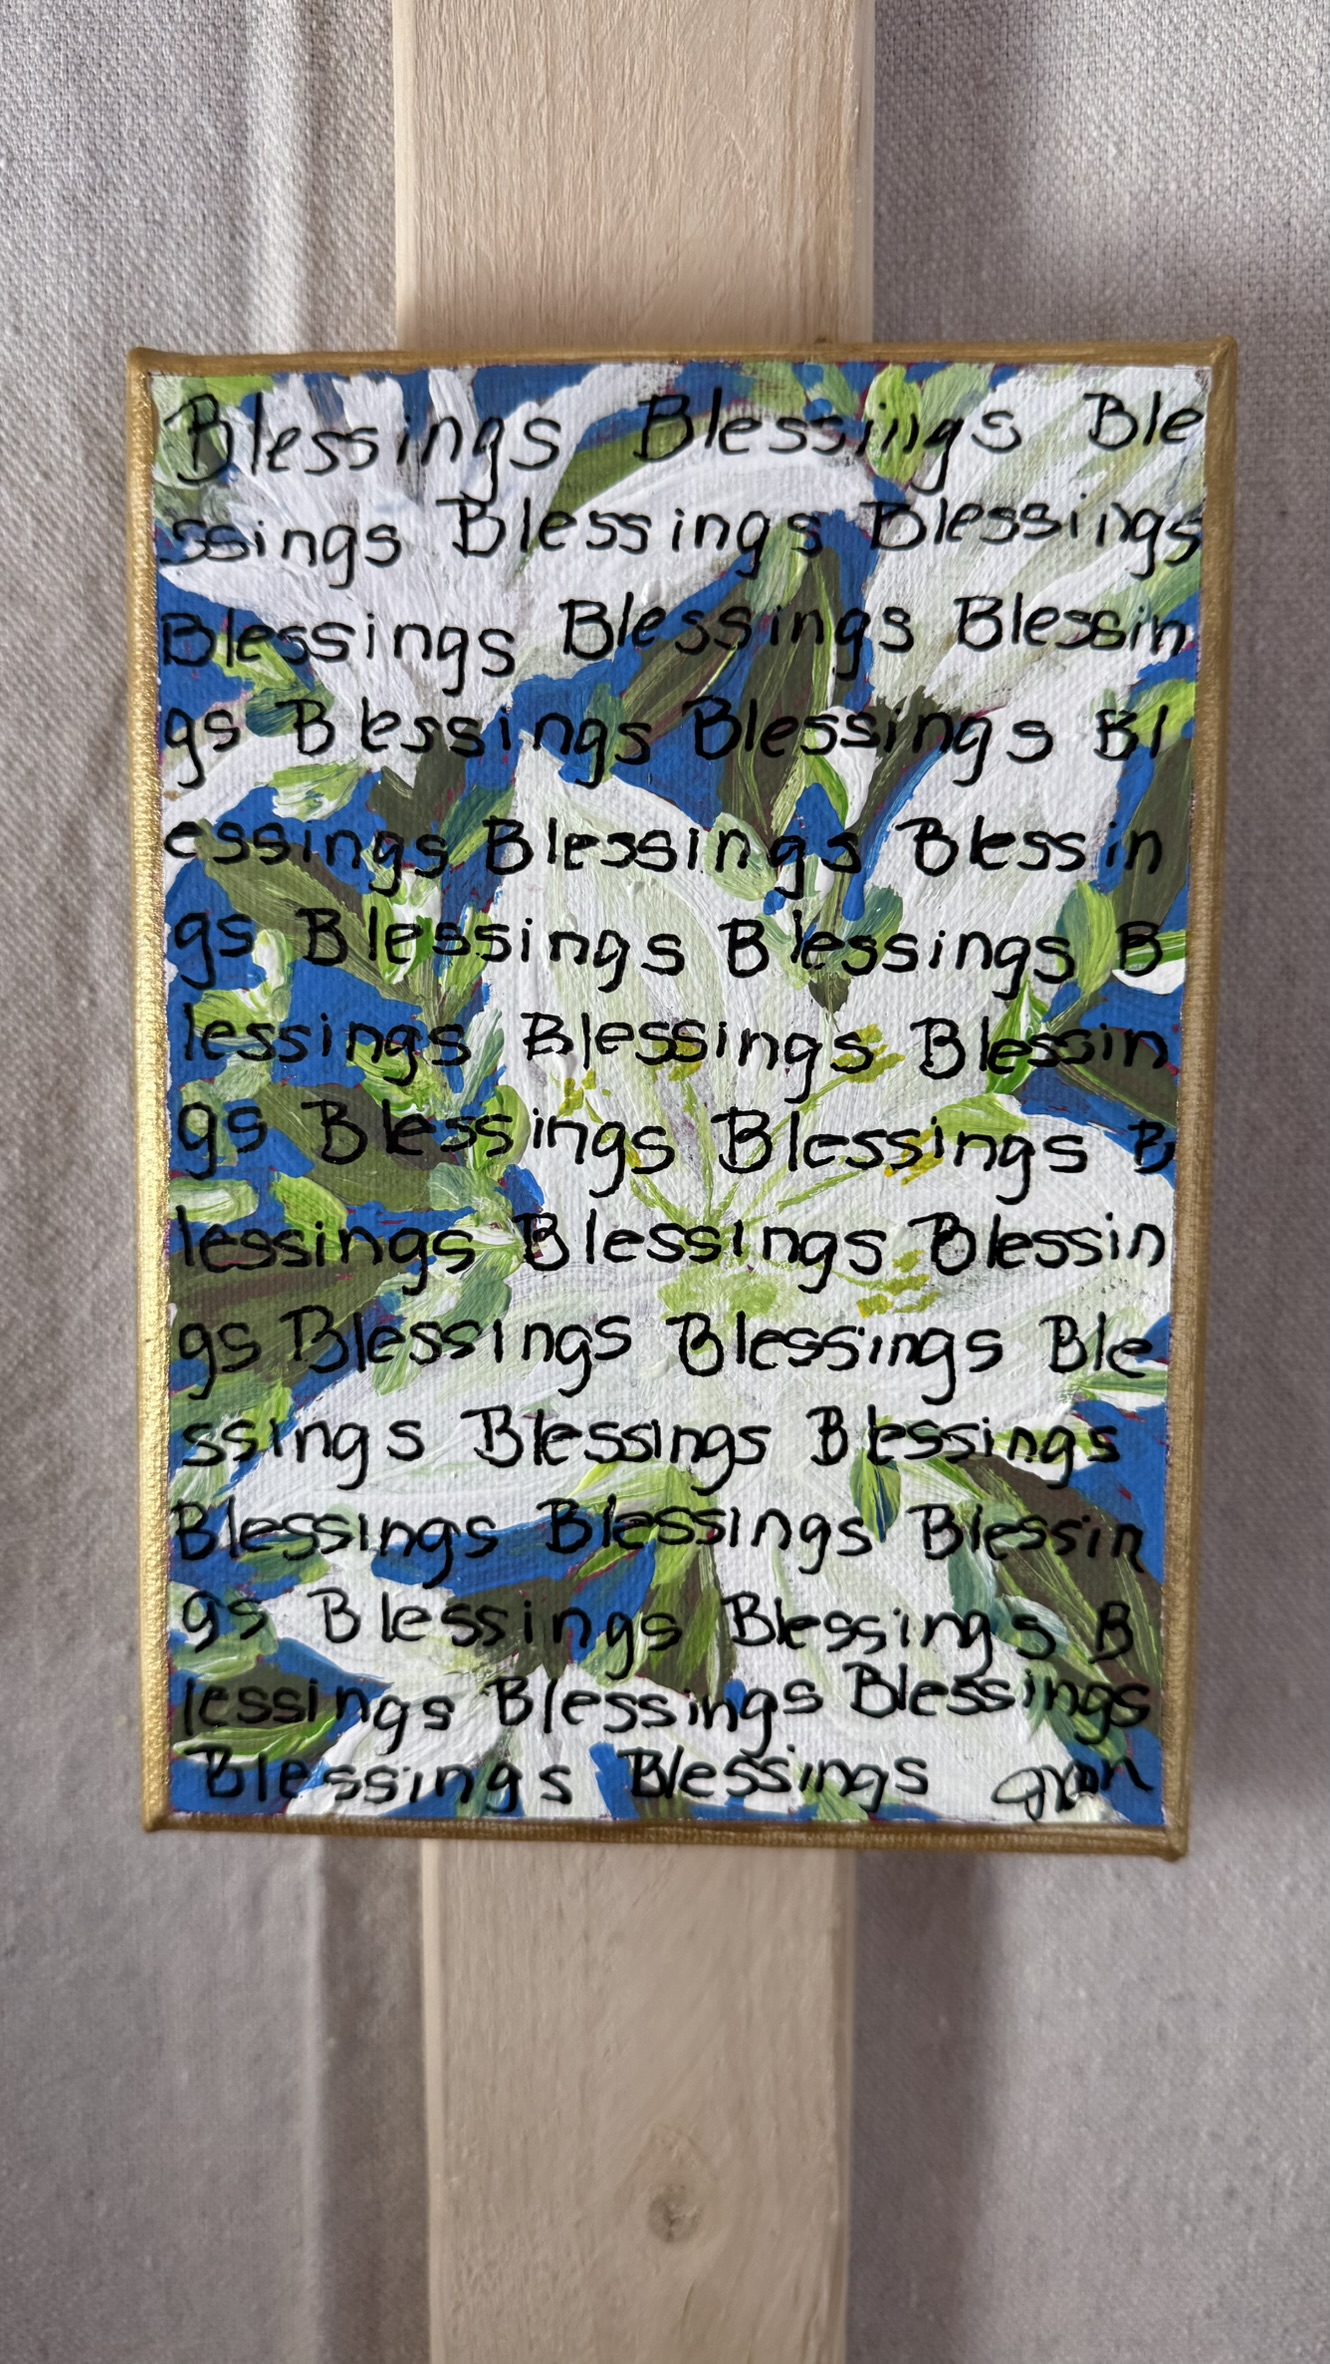 Blessings Blessings Ble
ssings Blessings Blessings
Blessings Blessings Blessin
gs Blessings Blessings Bl
essings Blessings Blessin
gs Blessings Blessings B
lessings Blessings Blessin
gs Blessings Blessings B
lessings Blessings Blessin
gs Blessings Blessings Ble
ssings Blessings Blessings
Blessings Blessings Blessin
gs Blessings Blessings B
lessings Blessings Blessings
Blessings Blessings